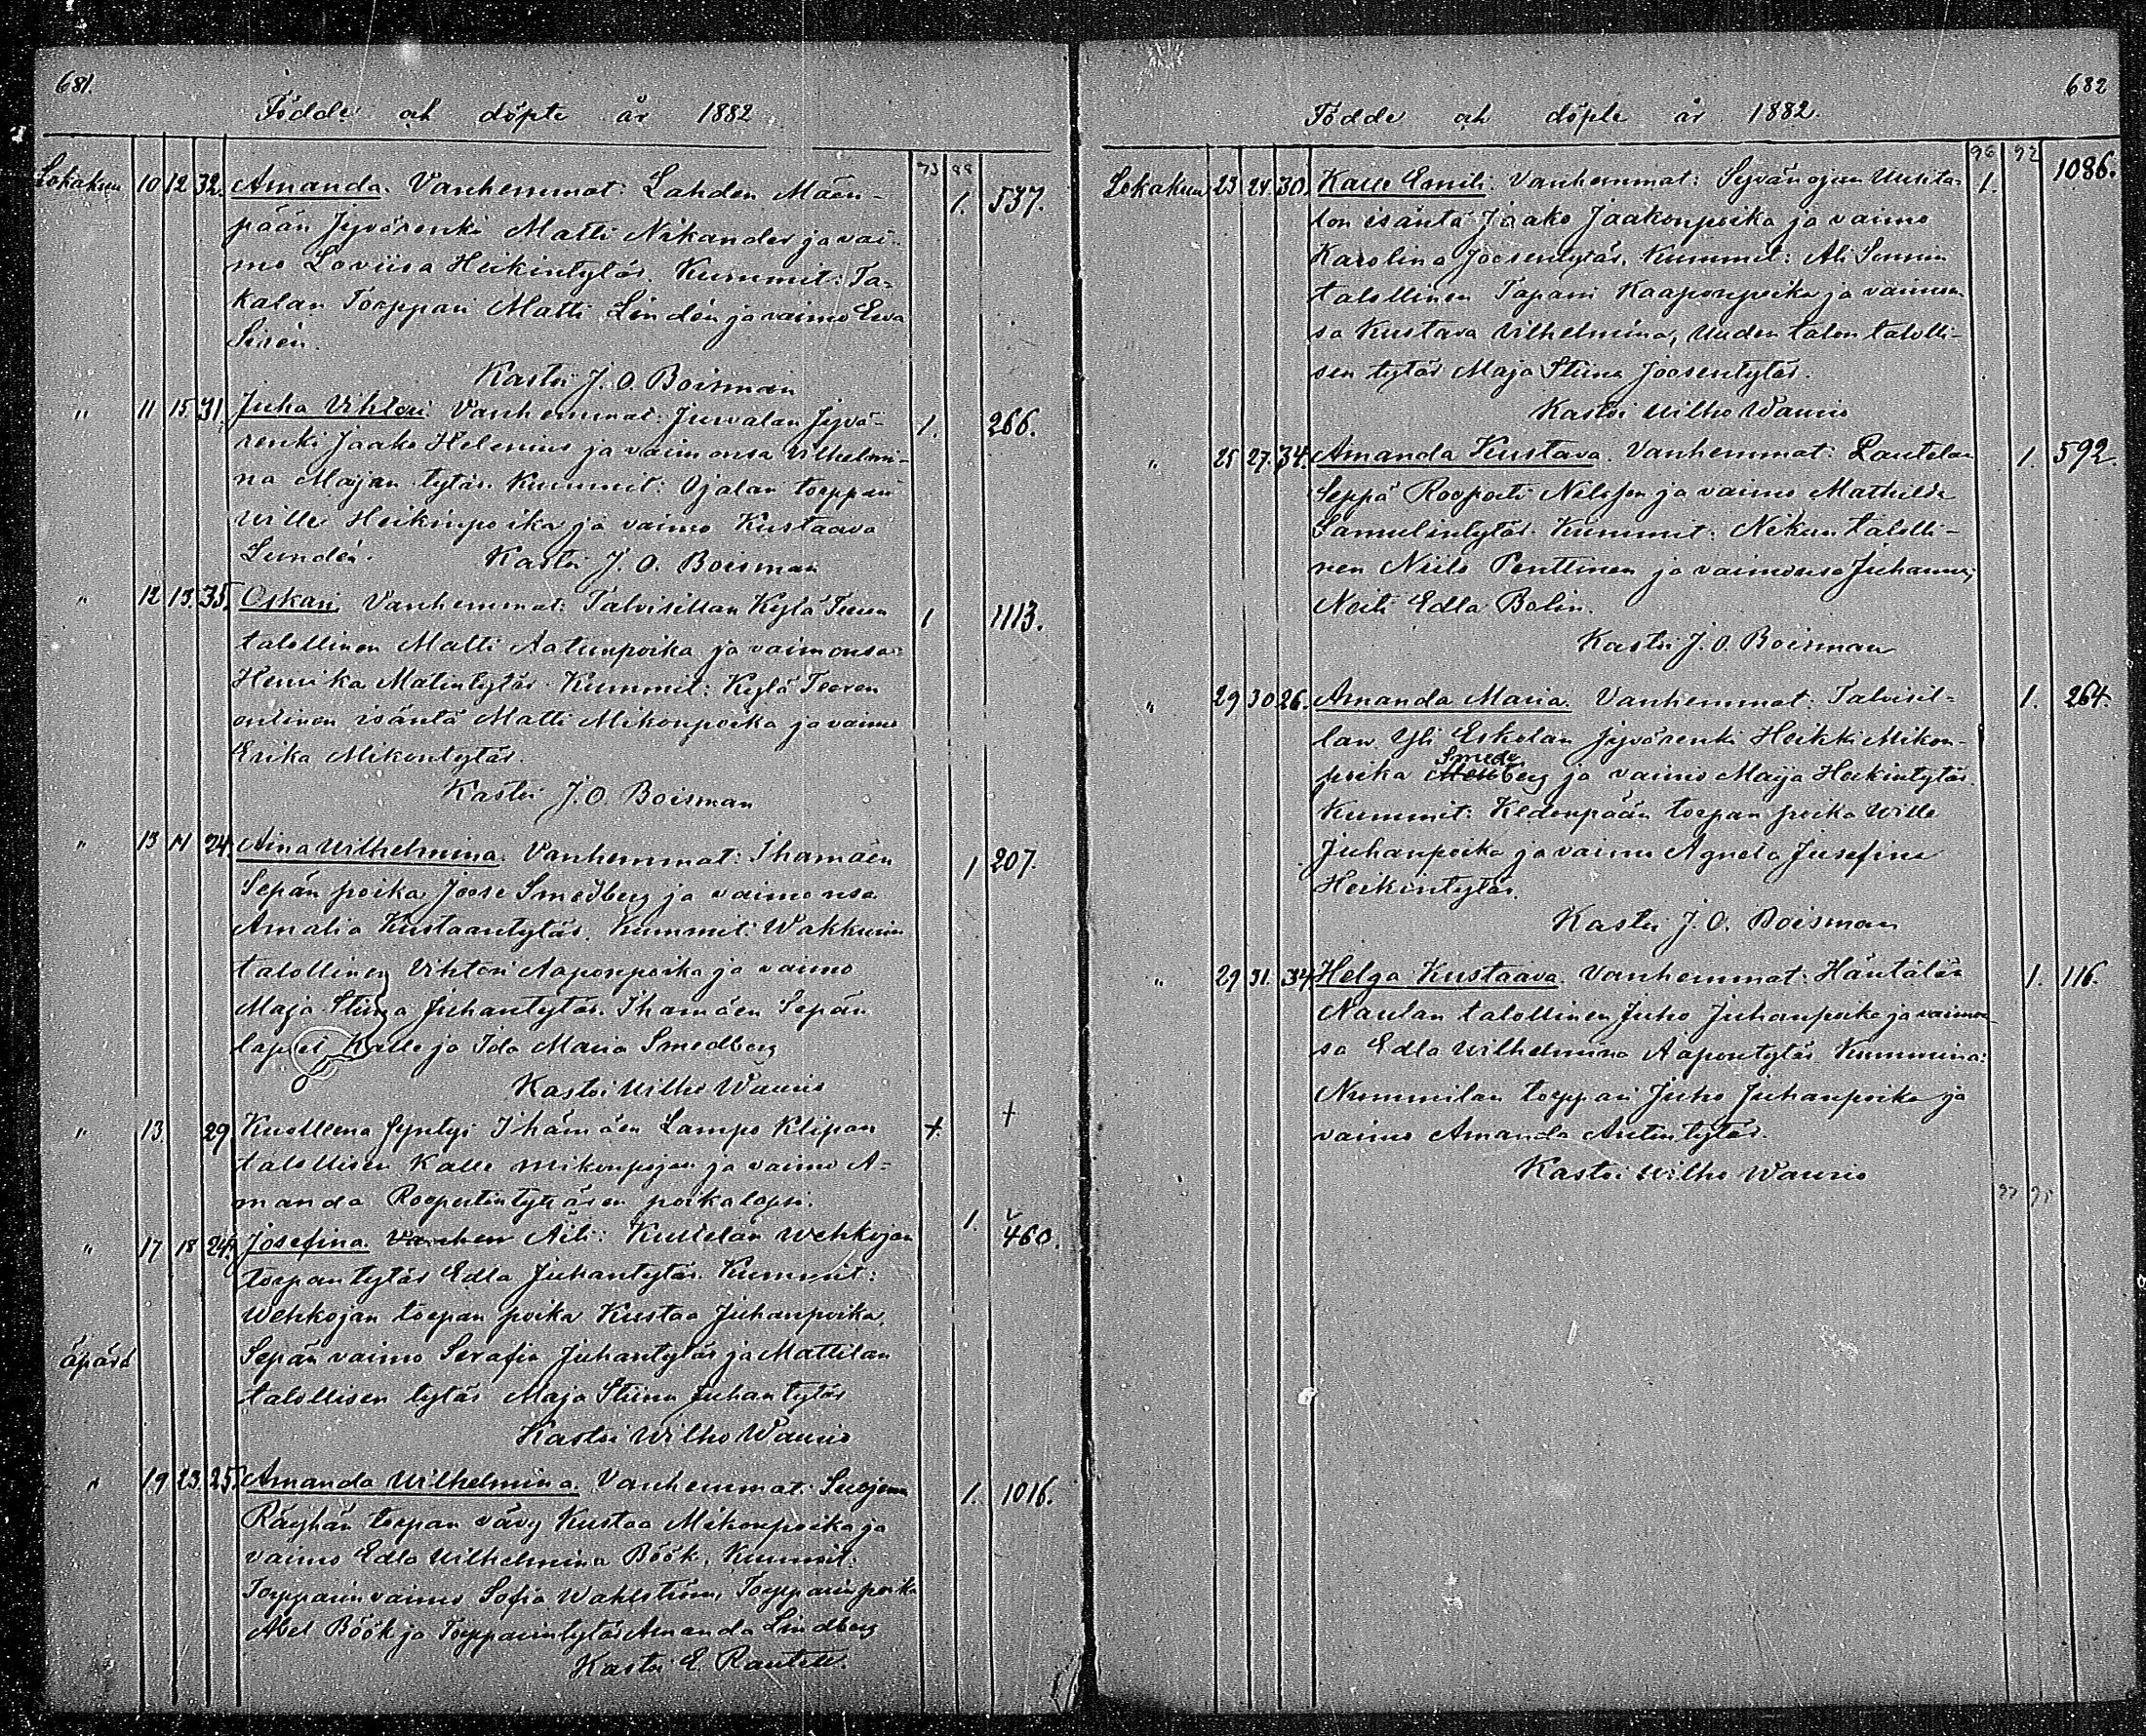 681.
Födde och döpte år 1882
73 88
Lokakuu 10 12 32. Amanda. Vanhemmat: Lahden Mäen-
pään Jyvärenki Matti Nikander ja vai-
mo Loviisa Heikintytär. Kummit: Ta-
kalan Torppari Matti Lindén ja vaimo Eeva
Sirén. 1. 537.
Kastoi J. O. Boisman
" 11 15 31. Juha Vihtori Vanhemmat: Juvalan Jyvä- 1. 266.
renki Jaako Helenius ja vaimonsa Vilhelmi-
na Majan tytär. Kummit: Ojalan torppari
Wille Heikinpoika ja vaimo Kustaava
Lundén. Kastoi J. O. Boisman
" 12 13. 35. Oskari Vanhemmat: Talvisillan Kylä Teeren 1 1113.
talollinen Matti Aatunpoika ja vaimonsa
Henrika Matintytär. Kummit: Kylä Teeren
entinen isäntä Matti Mikonpoika ja vaimo
Erika Mikontytär.
Kastoi J. O. Boisman
" 13 14 24. Aina Wilhelmina. Vanhemmat: Ihamäen 1 207.
Sepän poika Joose Smedberg ja vaimonsa
Amalia Kustaantytär. Kummit: Wakkurin
talollinen Vihtori Aaponpoika ja vaimo
Maja Stiina Juhantytär. Ihamäen Sepän
lapset Kalle ja Ida Maria Smedberg
Kastoi Wilho Waurio
" 13. 29 Kuolleena syntyi Ihämäen Lampo Klipan + +
talollisen Kalle Mikonpojan ja vaimo A-
manda Roopertintyträren poikalapsi.
" 17 18 24. Josefina. Vanhem Äiti: Kuttelan Wehkojan 1. 460.
torpan tytär Edla Juhantytär. Kummit:
Wehkojan torpan poika Kustaa Juhanpoika,
äpärä Sepän vaimo Serafia Juhantytär ja Mattilan
talollisen tytär Maja Stiina Juhantytär
Kastoi Wilho Waurio
" 19 23. 25. Amanda Wilhelmina. Vanhemmat: Suojoen 1. 1016.
Räyhän torpan vävy Kustaa Mikonpoika ja
vaimo Edla Wilhelmina Böök. Kummit:
Torpparin vaimo Sofia Wahlström, Torpparinpoika
Abel Böök ja Torpparintytär Amanda Lindberg
Kastoi E. Rautell.
682
Födde och döpte år 1882.
96 92
Lokakuu 23 24 30. Kalle Emili. Vanhemmat: Syvänojan Uusita- 1. 1086.
lon isäntä Jaako Jaakonpoika ja vaimo
Karolina Joosentytär. Kummit: Ali
talollinen Tapani Kaaponpoika ja vaimon-
sa Kustava Vilhelmina, Uuden talon talolli-
sen tytär Maja Stiina Joosentytär.
Kastoi Wilho Waurio
" 25 27. 34. Amanda Kustava. Vanhemmat: Rautelan 1. 592.
Seppä Rooperti Nelsson ja vaimo Mathilda
Samulintytär. Kummit: Nikun talolli-
nen Niilo Penttinen ja vaimonsa Juhanna,
Neiti Edla Bolin.
Kastoi J. O. Boisman
" 29 30 26. Amanda Maria. Vanhemmat: Talvisil- 1. 264.
lan Yli Eskolan Jyvärenki Heikki Mikon-
Smed
poika berg ja vaimo Maija Heikintytär.
Kummit: Kedonpään torpan poika Wille
Juhanpoika ja vaimo Agneta Jusefina
Heikintytär.
Kastoi J. O. Boisman
" 29 31. 34 Helga Kustaava. Vanhemmat: Häntälän 1. 116.
Naulan talollinen Juho Juhanpoika ja vaimon-
sa Edla Wilhelmina Aapontytär. Kummina:
Nummilan torppari Juho Juhanpoika ja
vaimo Amanda Antintytär.
Kastoi Wilho Waurio